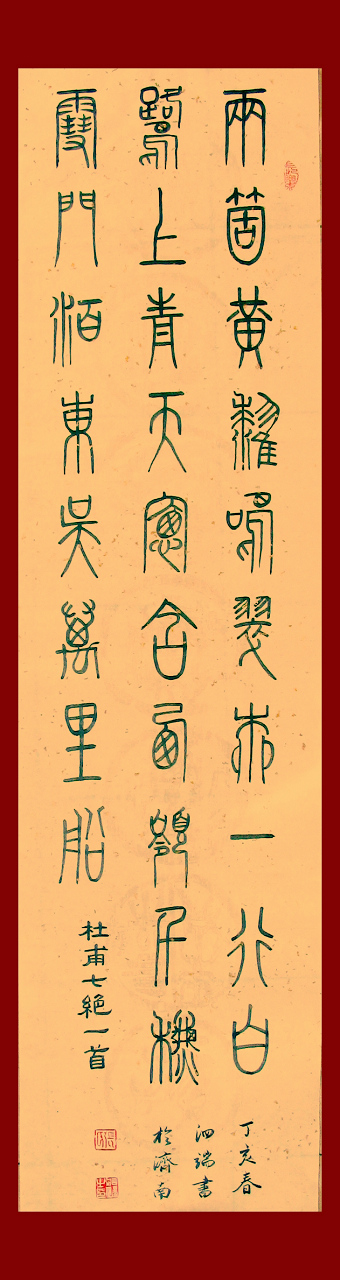 兩箇黃鸝鳴翠柳一行白
鷺上青天窗含西嶺千秋
雪門泊東吳萬里船
杜甫七絕一首
丁亥春
泗端書
於濟南